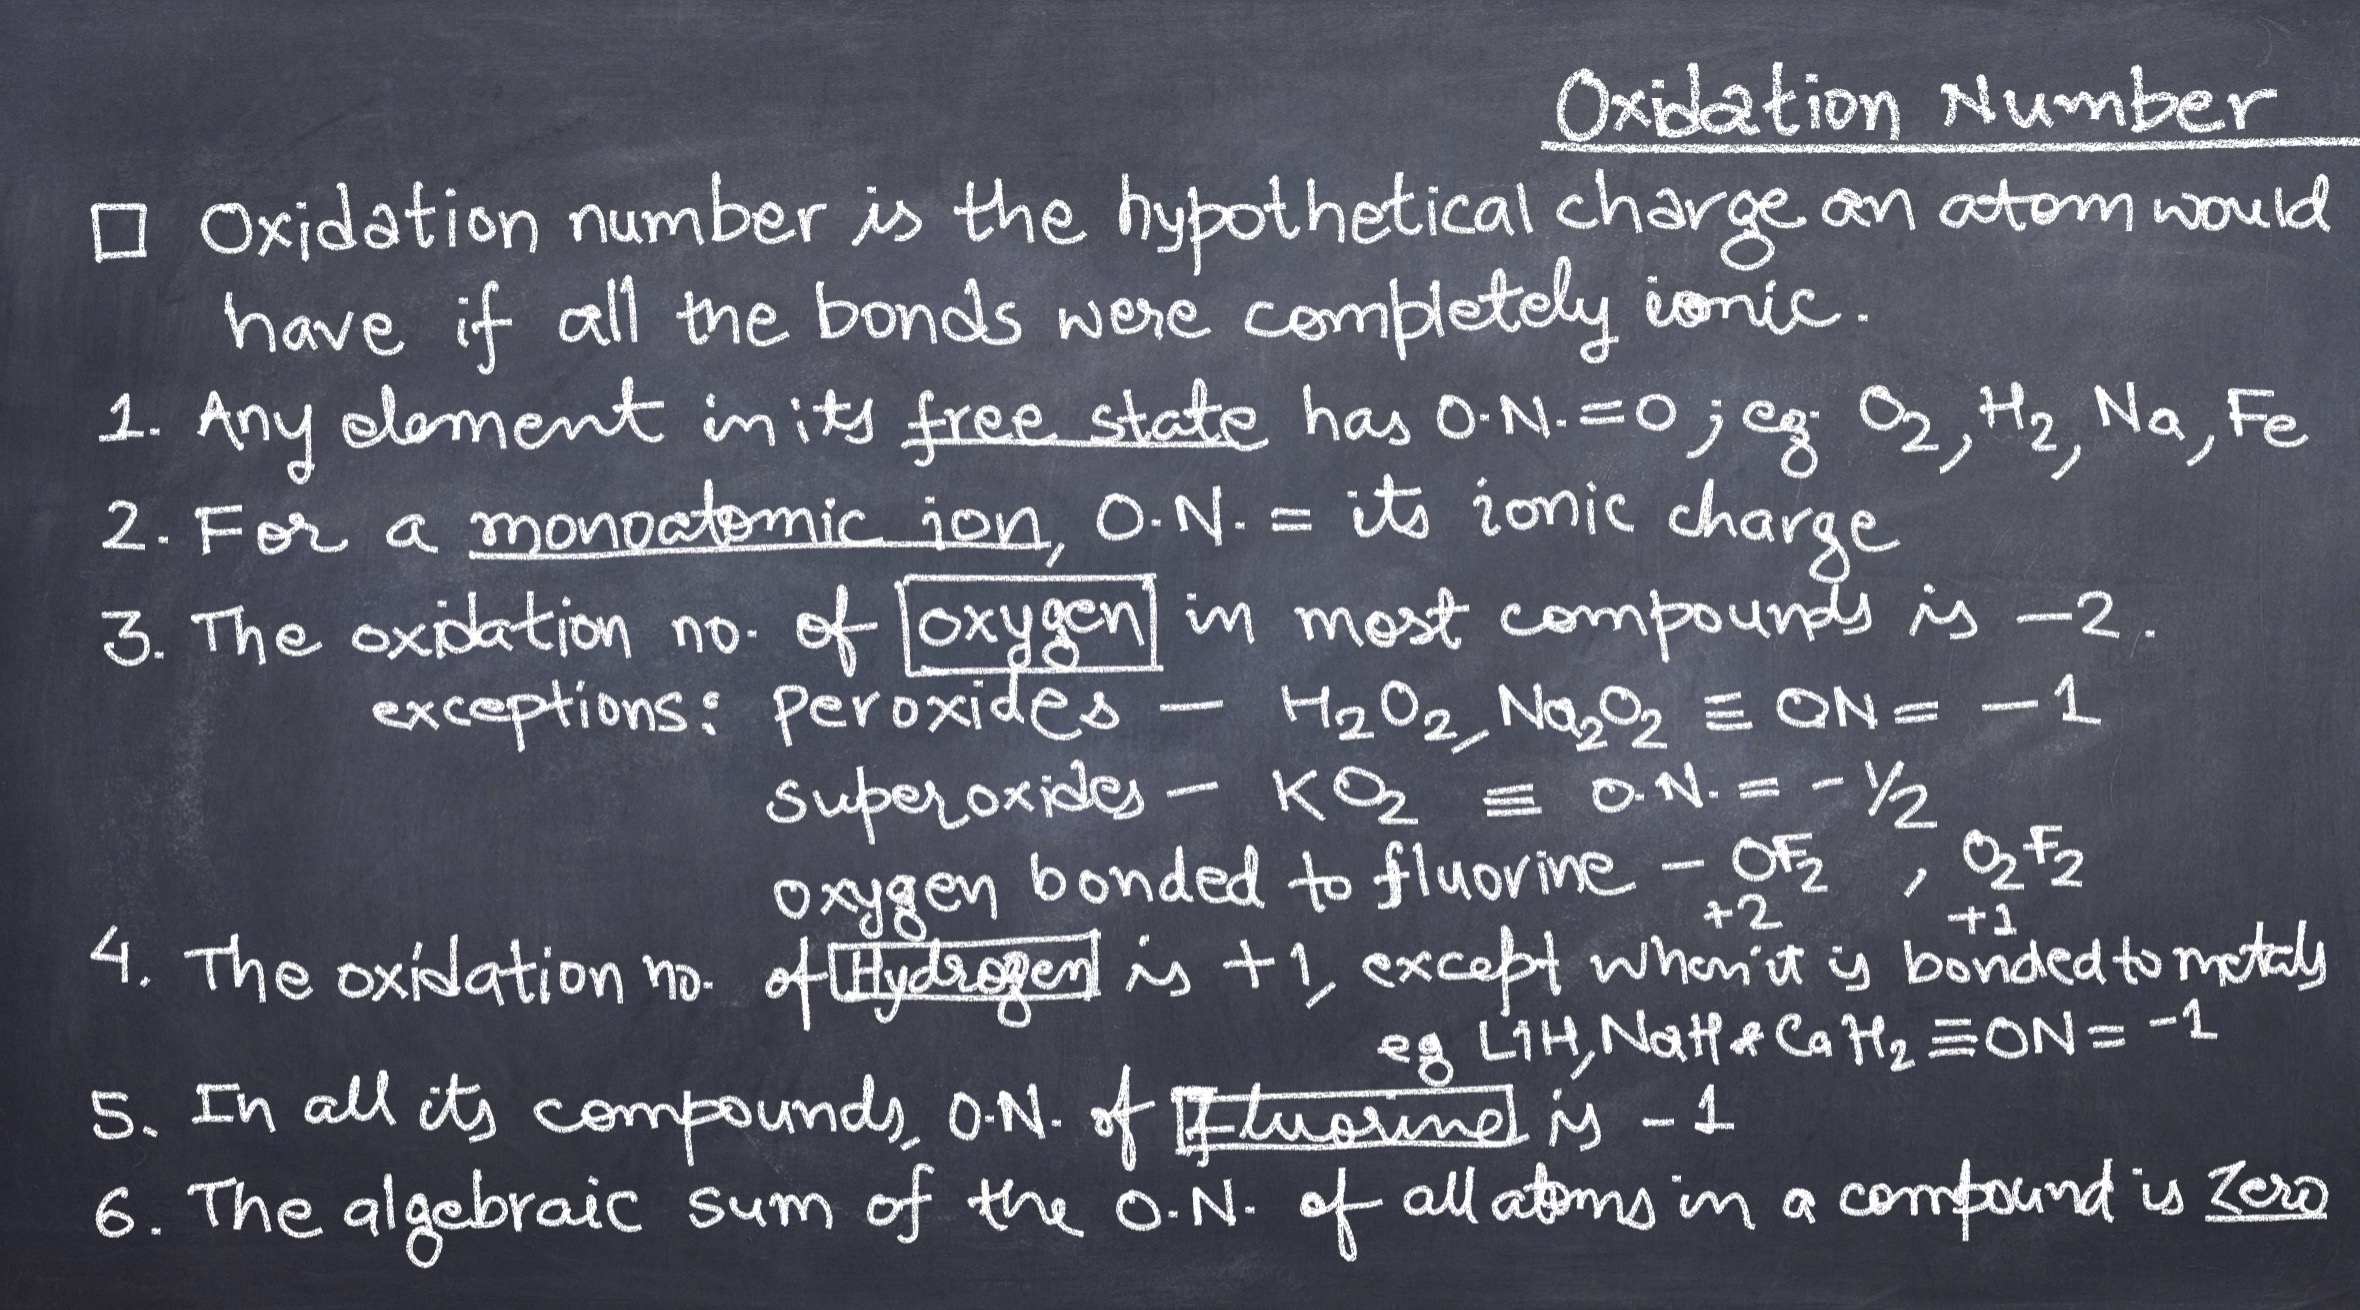 Oxidation Number
□ Oxidation number is the hypothetical charge an atom would
have if all the bonds were completely ionic.
1. Any element in its free state has O.N.=0; eg. O₂, H₂, Na, Fe
2. For a monoatomic ion, O.N. = its ionic charge
3. The oxidation no. of oxygen in most compounds is −2.
exceptions: peroxides − H₂O₂, Na₂O₂ ≡ ON = −1
superoxides − KO₂ ≡ O.N. = −1/2
oxygen bonded to fluorine − OF₂, O₂F₂
+2 +1
4. The oxidation no. of Hydrogen is +1, except when it is bonded to metals
eg LiH, NaH & CaH₂ ≡ ON = −1
5. In all its compounds, O.N. of Fluorine is −1
6. The algebraic sum of the O.N. of all atoms in a compound is Zero